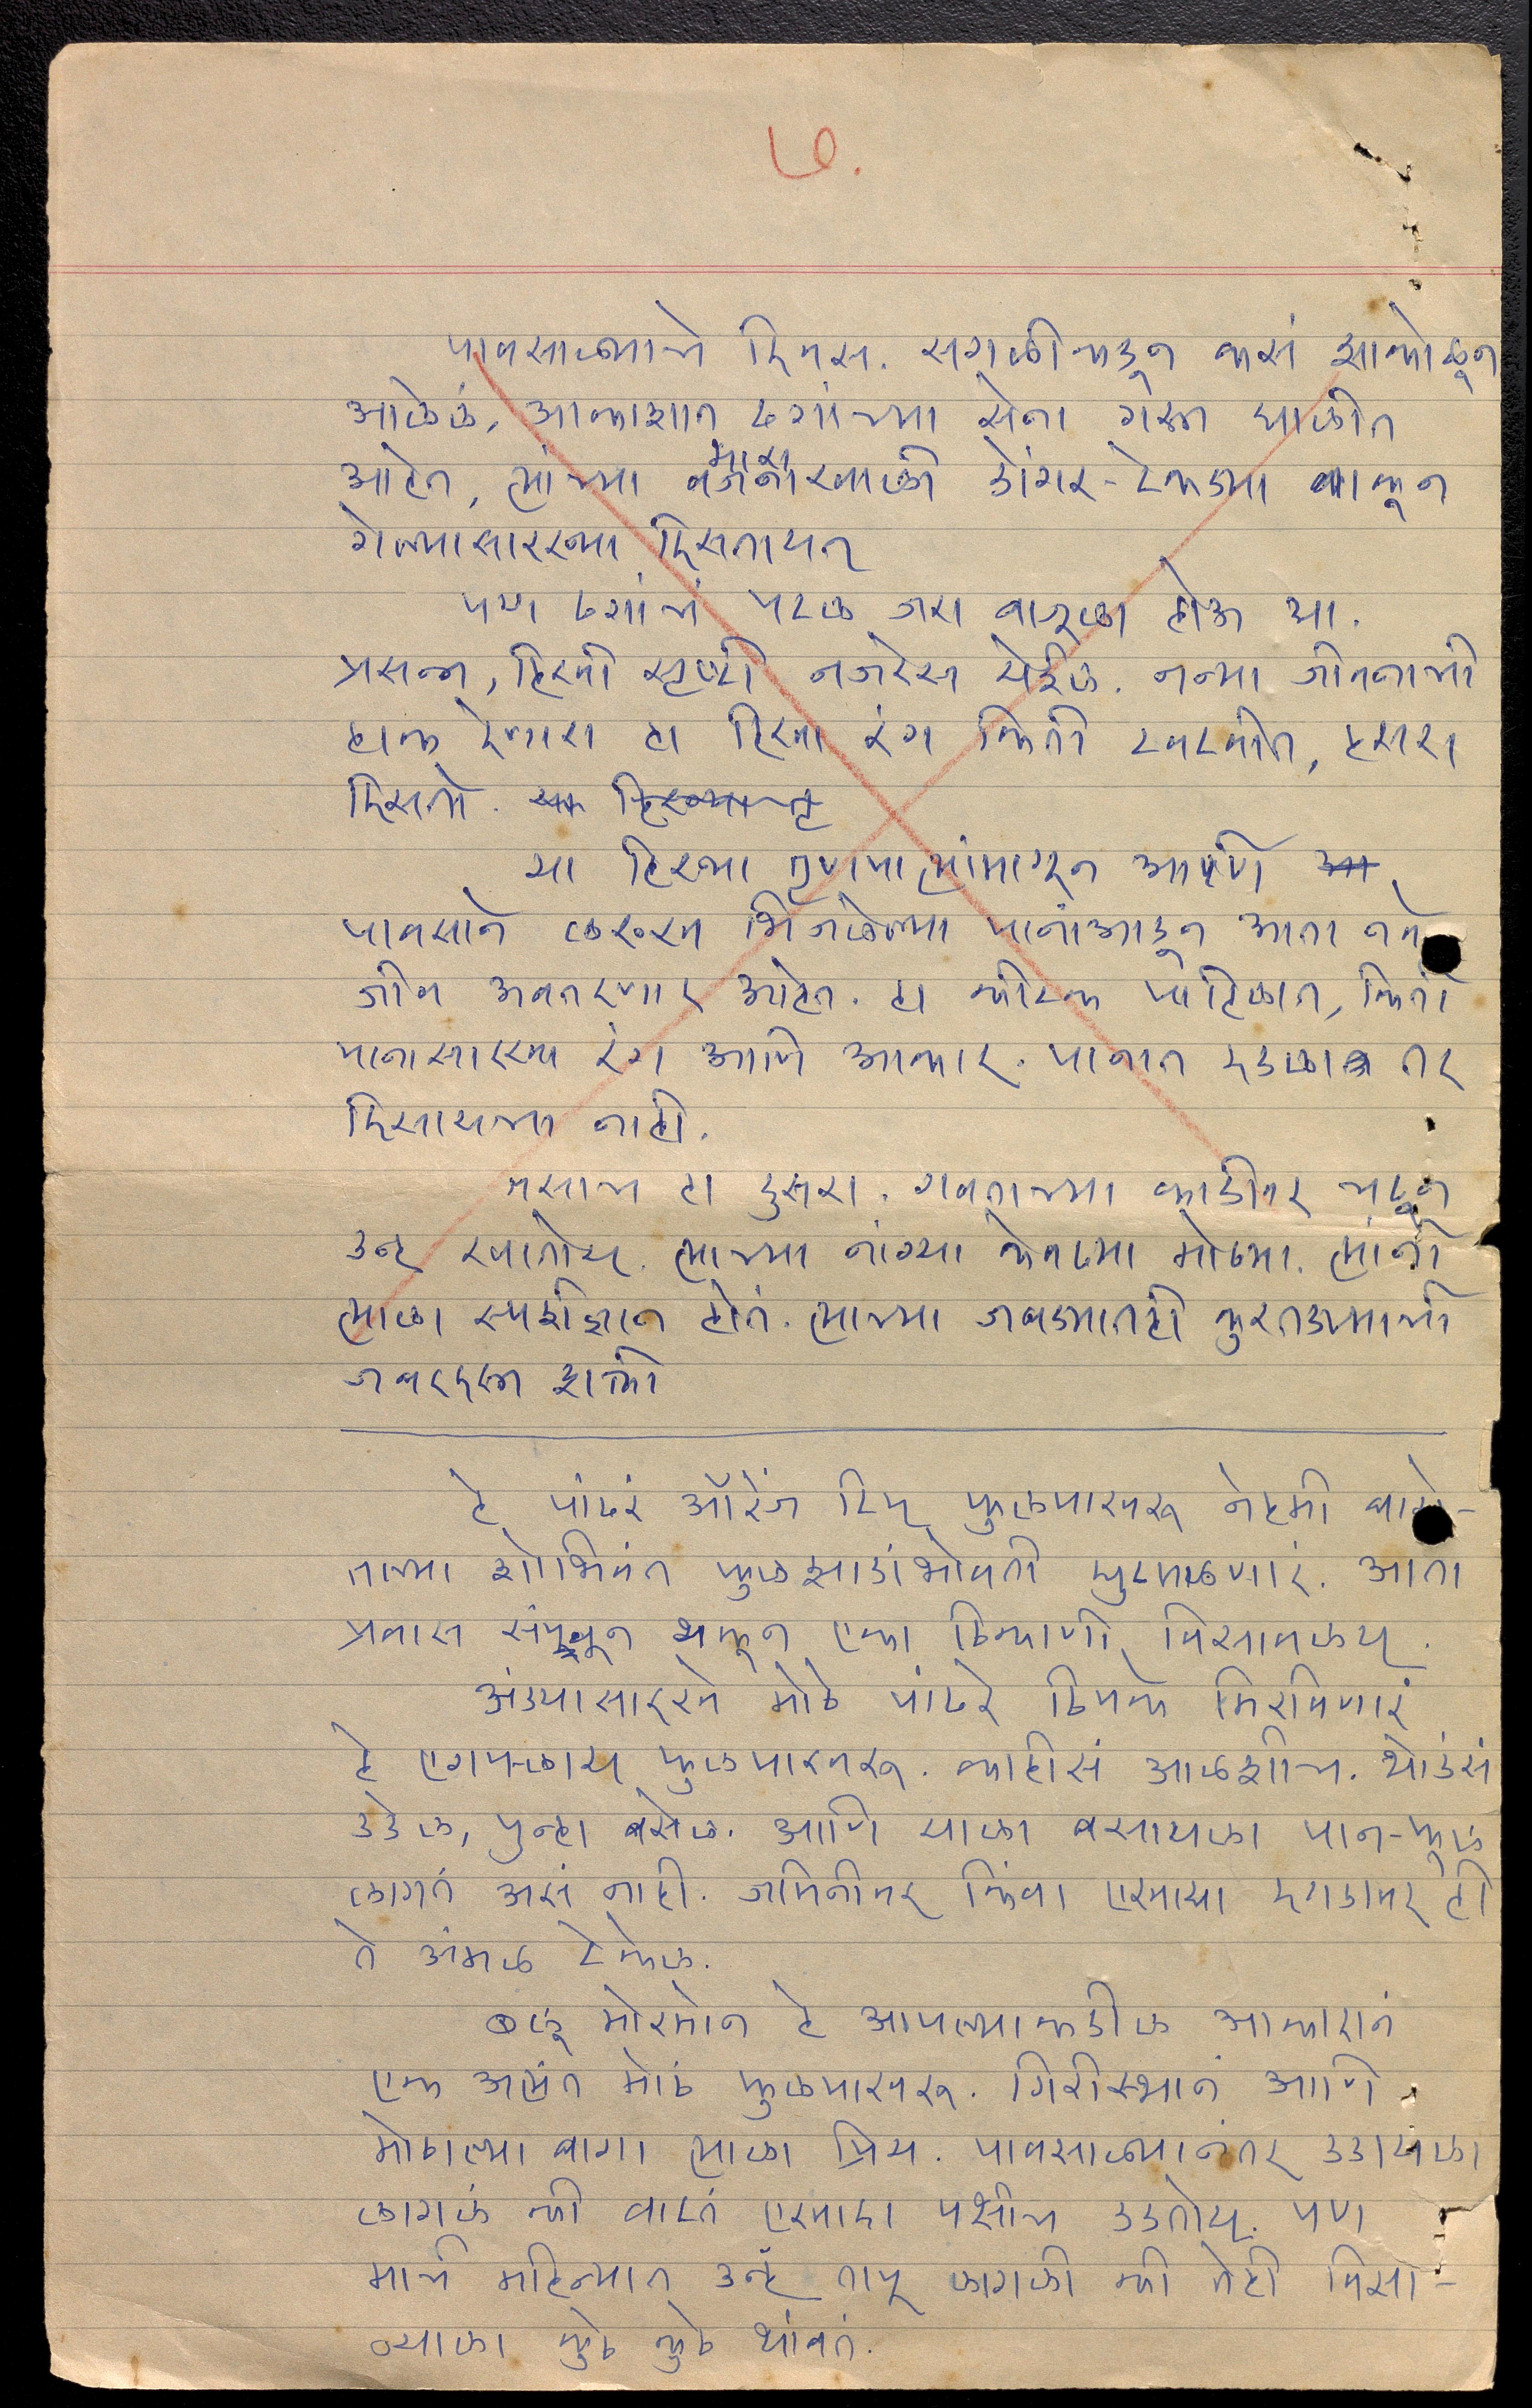 ७.
पावसाळ्याचे दिवस. सगळीकडून कसं झाकोळून
आलेलं, आकाशात ढगांच्या सेना गस्त घालीत
आहेत, त्यांच्या भाराखाली डोंगर-टेकड्या वाकून
गेल्यासारख्या दिसतायत
पण ढगांचं पटल जरा बाजूला होऊ द्या.
प्रसन्न, हिरवी सृष्टी नजरेस येईल. नव्या जीवनाची
हाक देणारा हा हिरवा रंग किती टवटवीत, हसरा
दिसतो.
या हिरव्या तृणपात्यांमागून आणि
पावसाने लख्ख भिजलेल्या पानांआडून आता नवे
जीव अवतरणार आहेत. हा कीटक पाहिलात, किती
पानासारखा रंग आणि आकार. पानात दडला तर
दिसायचा नाही.
तसाच हा दुसरा. गवताच्या काडीवर चढून
उन्ह खातोय. त्याच्या नांग्या केवढ्या मोठ्या. त्यांनी
त्याला स्पर्शज्ञान होतं. त्याच्या जबड्यातही कुरतडण्याची
जबरदस्त शक्ती
हे पांढरं ऑरेंज टिप् फुलपाखरू नेहमी बागे-
तल्या शोभिवंत फुलझाडांभोवती घुटमळणारं. आता
प्रवास संपवून थकून एका ठिकाणी विसावलय.
अंड्यासारखे मोठे पांढरे ठिपके मिरविणारं
हे एगफ्लाय फुलपाखरू. काहीसं आळशीच. थोडंसं
उडेल, पुन्हा बसेल. आणि याला बसायला पान-फूलं
लागतं असं नाही. जमिनीवर किंवा एखाद्या दगडावर ही
ते अंमळ टेकेल.
ब्लू मोरमोन हे आपल्याकडील आकारानं
एक अत्यंत मोठं फुलपाखरू. गिरीस्थानं आणि
मोठाल्या बागा त्याला प्रिय. पावसाळ्यानंतर उडायला
लागलं की वाटतं एखादा पक्षीच उडतोय. पण
मार्च महिन्यात उन्हं तापू लागली की तेही विसा-
व्याला कुठे कुठे थांबतं.